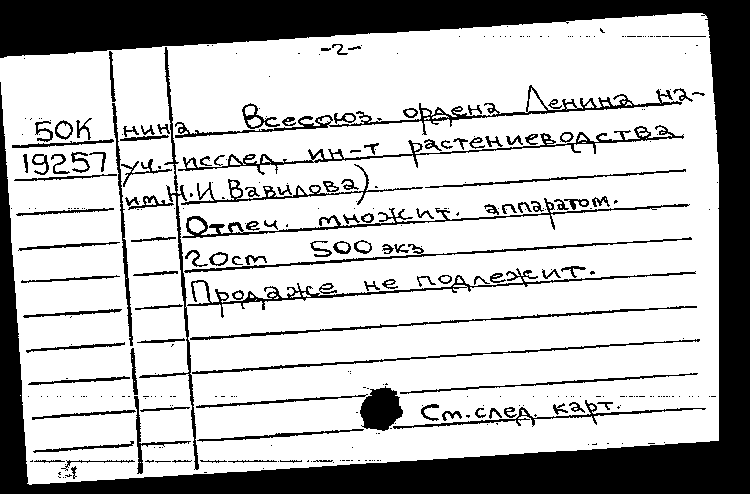 -2-
50К нина. Всесоюз. ордена Ленина на-
19257 уч.-исслед. ин-т растениеводства
им.Н.И.Вавилова).
Отпеч. множит. аппаратом.
20ст 500 экз
Продаже не подлежит.
См.след. карт.